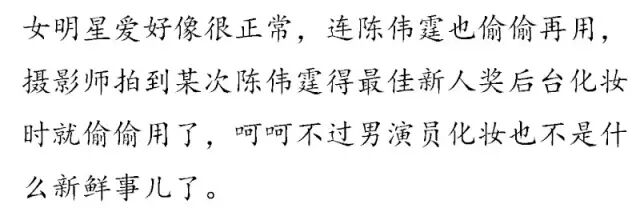 女明星爱好像很正常，连陈伟霆也偷偷再用，
摄影师拍到某次陈伟霆得最佳新人奖后台化妆
时就偷偷用了，呵呵不过男演员化妆也不是什
么新鲜事儿了。